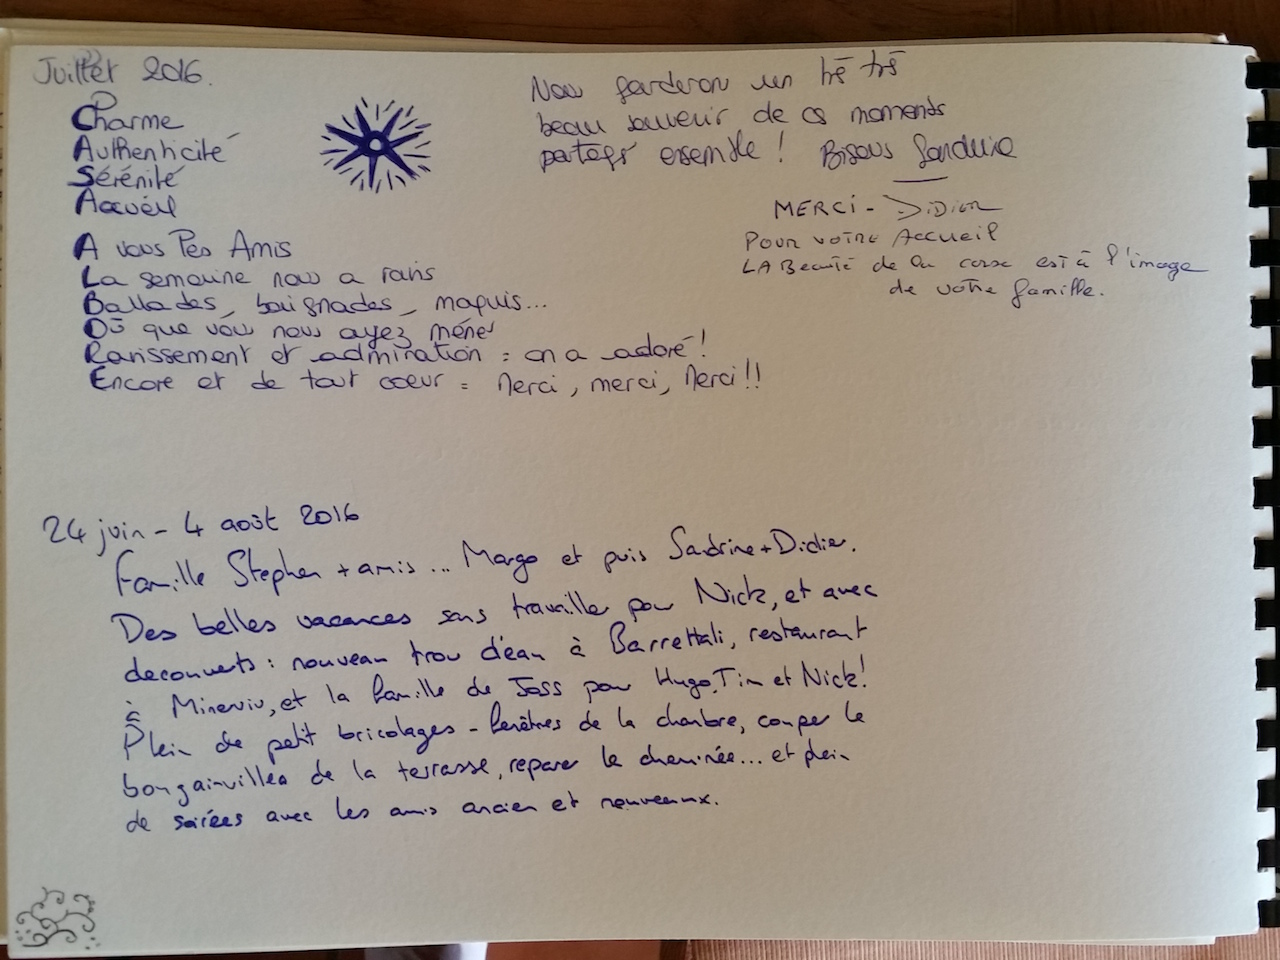 Juillet 2016.
Charme
Authenticité
Sérénité
Accueil
A vous Pes Amis
La semaine nous a ravis
Ballades, baignades, maquis...
Où que vous nous ayez menés
Ravissement et admiration : on a adoré !
Encore et de tout coeur = Merci, merci, Merci !!
Nous garderons un très très
beau souvenir de ces moments
partagés ensemble ! Bisous Sandrine
MERCI - Didier
Pour votre Accueil
LA Beauté de la corse est à l'image
de votre famille.
24 juin - 4 août 2016
Famille Stephen + amis ... Margo et puis Sandrine + Didier.
Des belles vacances sans travaille pour Nick, et avec
decouverts : nouveau trou d'eau à Barrettali, restaurant
à Minerviu, et la famille de Joss pour Hugo, Tim et Nick !
Plein de petit bricolages - fenêtres de la chambre, couper le
bougainvillea de la terrasse, reparer la cheminée... et plein
de soirées avec les amis ancien et nouveaux.